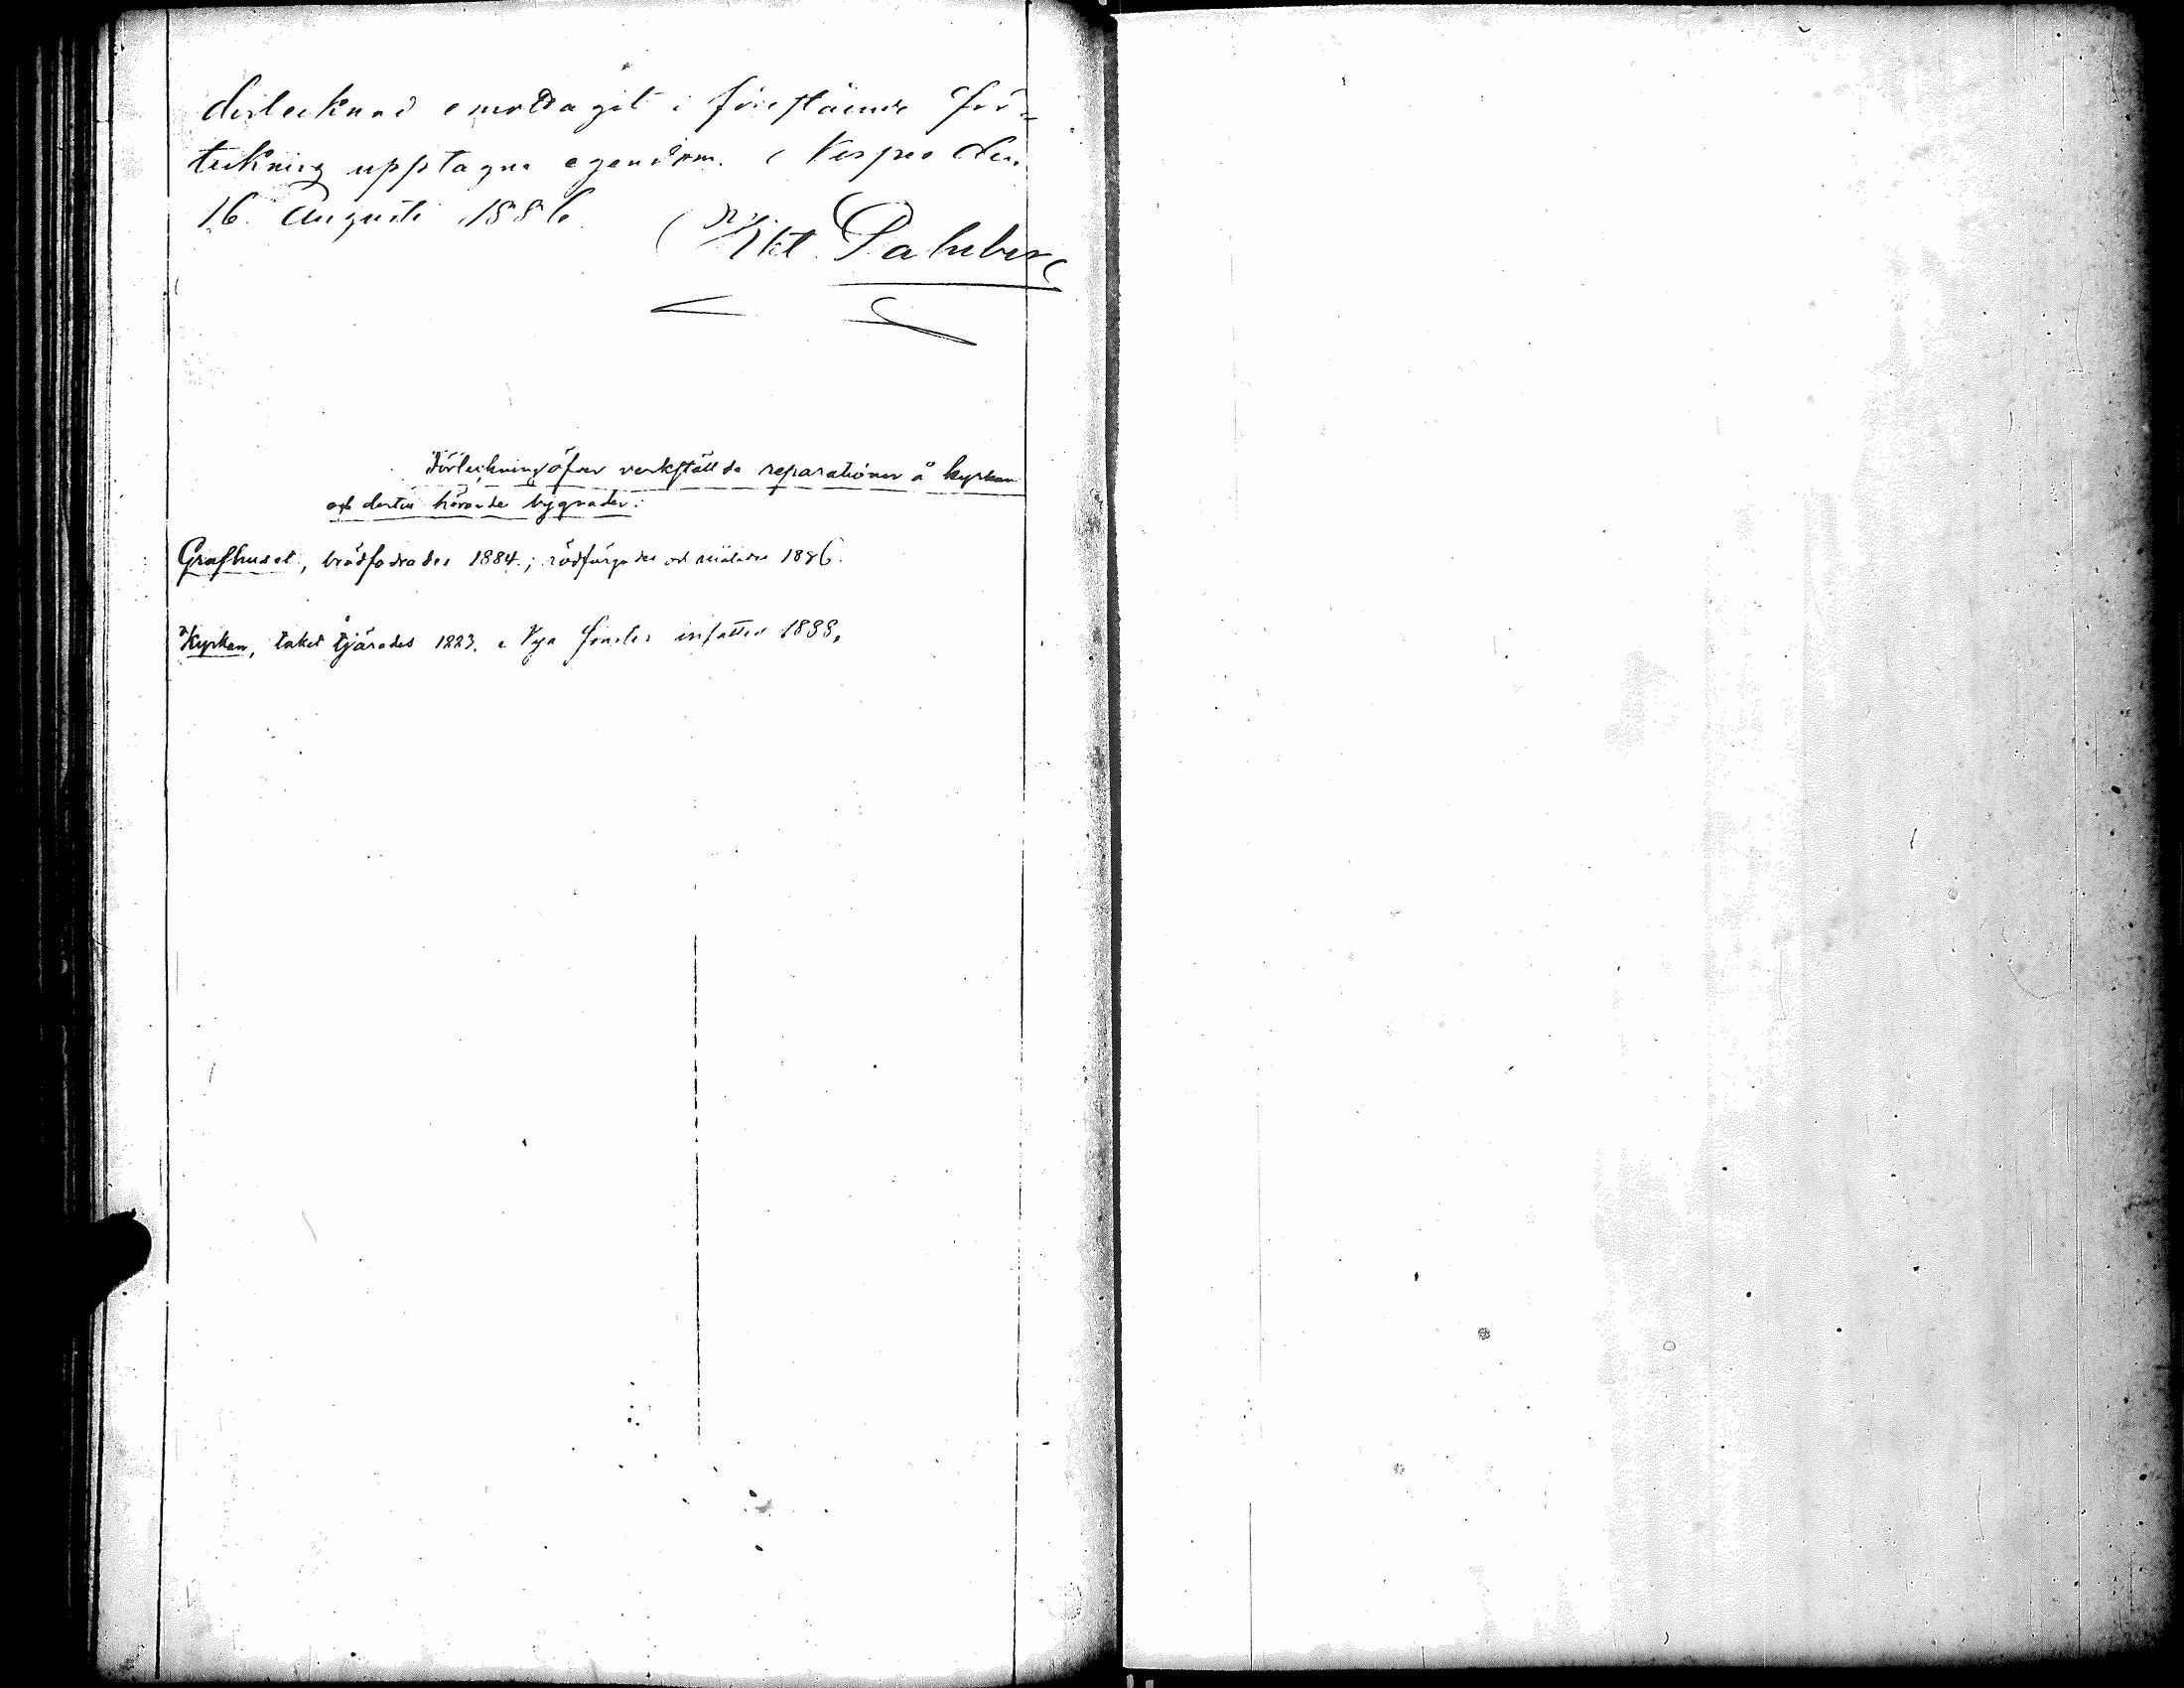 dertecknad emottagit i förestående för-
teckning upptagna egendom. Kespeo den
16 Augusti 1886
Vikt. Palmberg
Förteckning öfver verkstälda reparationer å kyrkan
och dertill hörande bygnader:
Grafhuset, brädfodrades 1884; rödfärgades och målades 1886.
Kyrkan, taket tjärades 1883. Nya fönster insattes 1888.